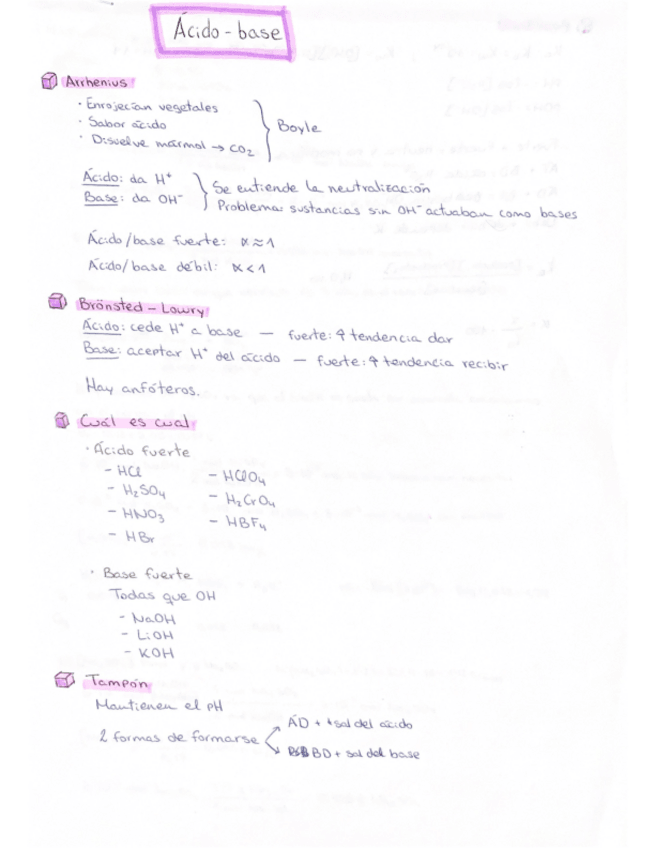 Ácido-base
Arrhenius
· Enrojecían vegetales
· Sabor ácido
· Disuelve mármol → CO₂
Boyle
Ácido: da H⁺
Base: da OH⁻
Se entiende la neutralización
Problema: sustancias sin OH⁻ actuaban como bases
Ácido/base fuerte: α≈1
Ácido/base débil: α<1
Brönsted-Lowry
Ácido: cede H⁺ a base — fuerte: ↑ tendencia dar
Base: aceptar H⁺ del ácido — fuerte: ↑ tendencia recibir
Hay anfóteros.
Cuál es cual
· Ácido fuerte
- HCl
- H₂SO₄
- HNO₃
- HBr
- HClO₄
- H₂CrO₄
- HBF₄
· Base fuerte
Todas que OH
- NaOH
- LiOH
- KOH
Tampón
Mantienen el pH
2 formas de formarse
ÁD + sal del ácido
BD + sal del base